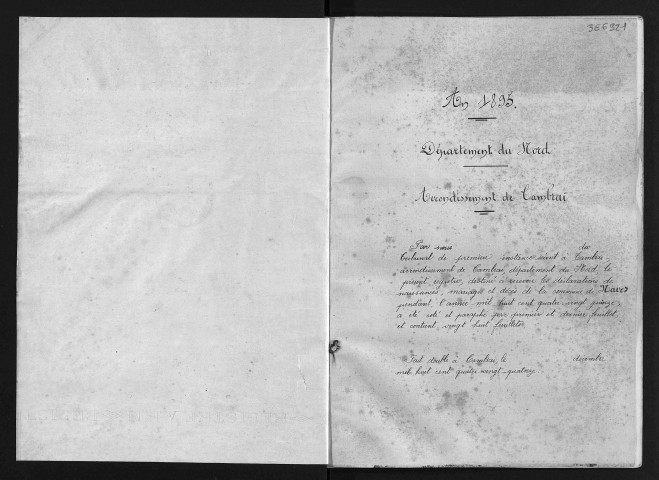 366921
An 1895.
Département du Nord
Arrondissement de Cambrai
Par nous du
Tribunal de première instance séant à Cambrai
arrondissement de Cambrai, département du Nord, le
présent registre, destiné à recevoir les déclarations de
naissances, mariages et décès de la commune de Naves
pendant l'année mil huit cent quatre vingt quinze
a été coté et paraphé par premier et dernier feuillet
et contient vingt huit feuillets
Fait double à Cambrai, le décembre
mil huit cent quatre-vingt-quatorze